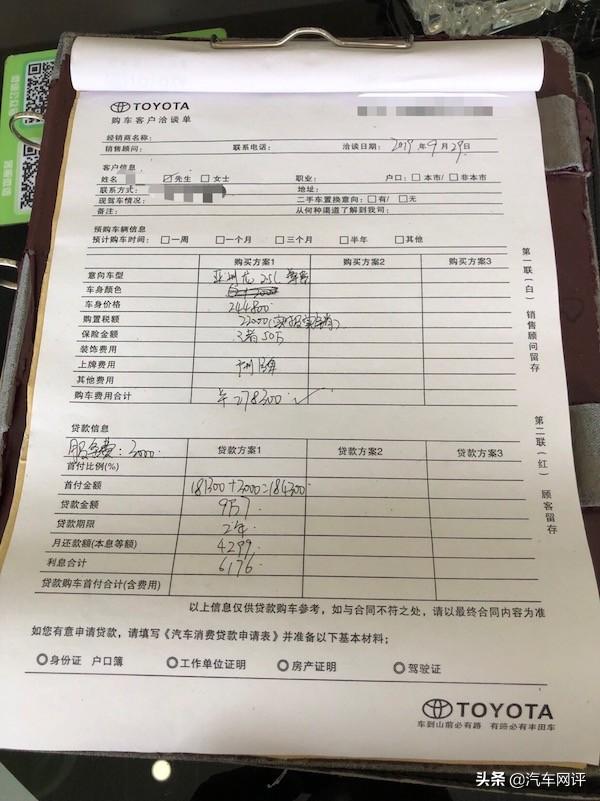 TOYOTA
购车客户洽谈单
经销商名称:
销售顾问: 联系电话: 洽谈日期: 2019年9月29日
客户信息
姓名 先生 女士 职业: 户口: 本市/ 非本市
联系方式: 地址:
现驾车情况: 二手车置换意向: 有/ 无
备注: 从何种渠道了解到我司:
预购车辆信息
预计购车时间: 一周 一个月 三个月 半年 其他
购买方案1 购买方案2 购买方案3
意向车型 亚洲龙 2.5L
车身颜色
车身价格 244800
购置税额 22000
保险金额 三者50万
装饰费用
上牌费用
其他费用
购车费用合计 ¥278300 ✓
贷款信息
服务费: 3000.
贷款方案1 贷款方案2 贷款方案3
首付比例(%)
首付金额 181300+3000=184300
贷款金额 9万
贷款期限 2年
月还款额(本息等额) 4299.
利息合计 6176
贷款购车首付合计(含费用)
以上信息仅供贷款购车参考，如与合同不符之处，请以最终合同内容为准
如您有意申请贷款，请填写《汽车消费贷款申请表》并准备以下基本材料;
身份证 户口簿 工作单位证明 房产证明 驾驶证
TOYOTA
车到山前必有路 有路必有丰田车
第一联(白) 销售顾问留存
第二联(红) 顾客留存
头条 @汽车网评